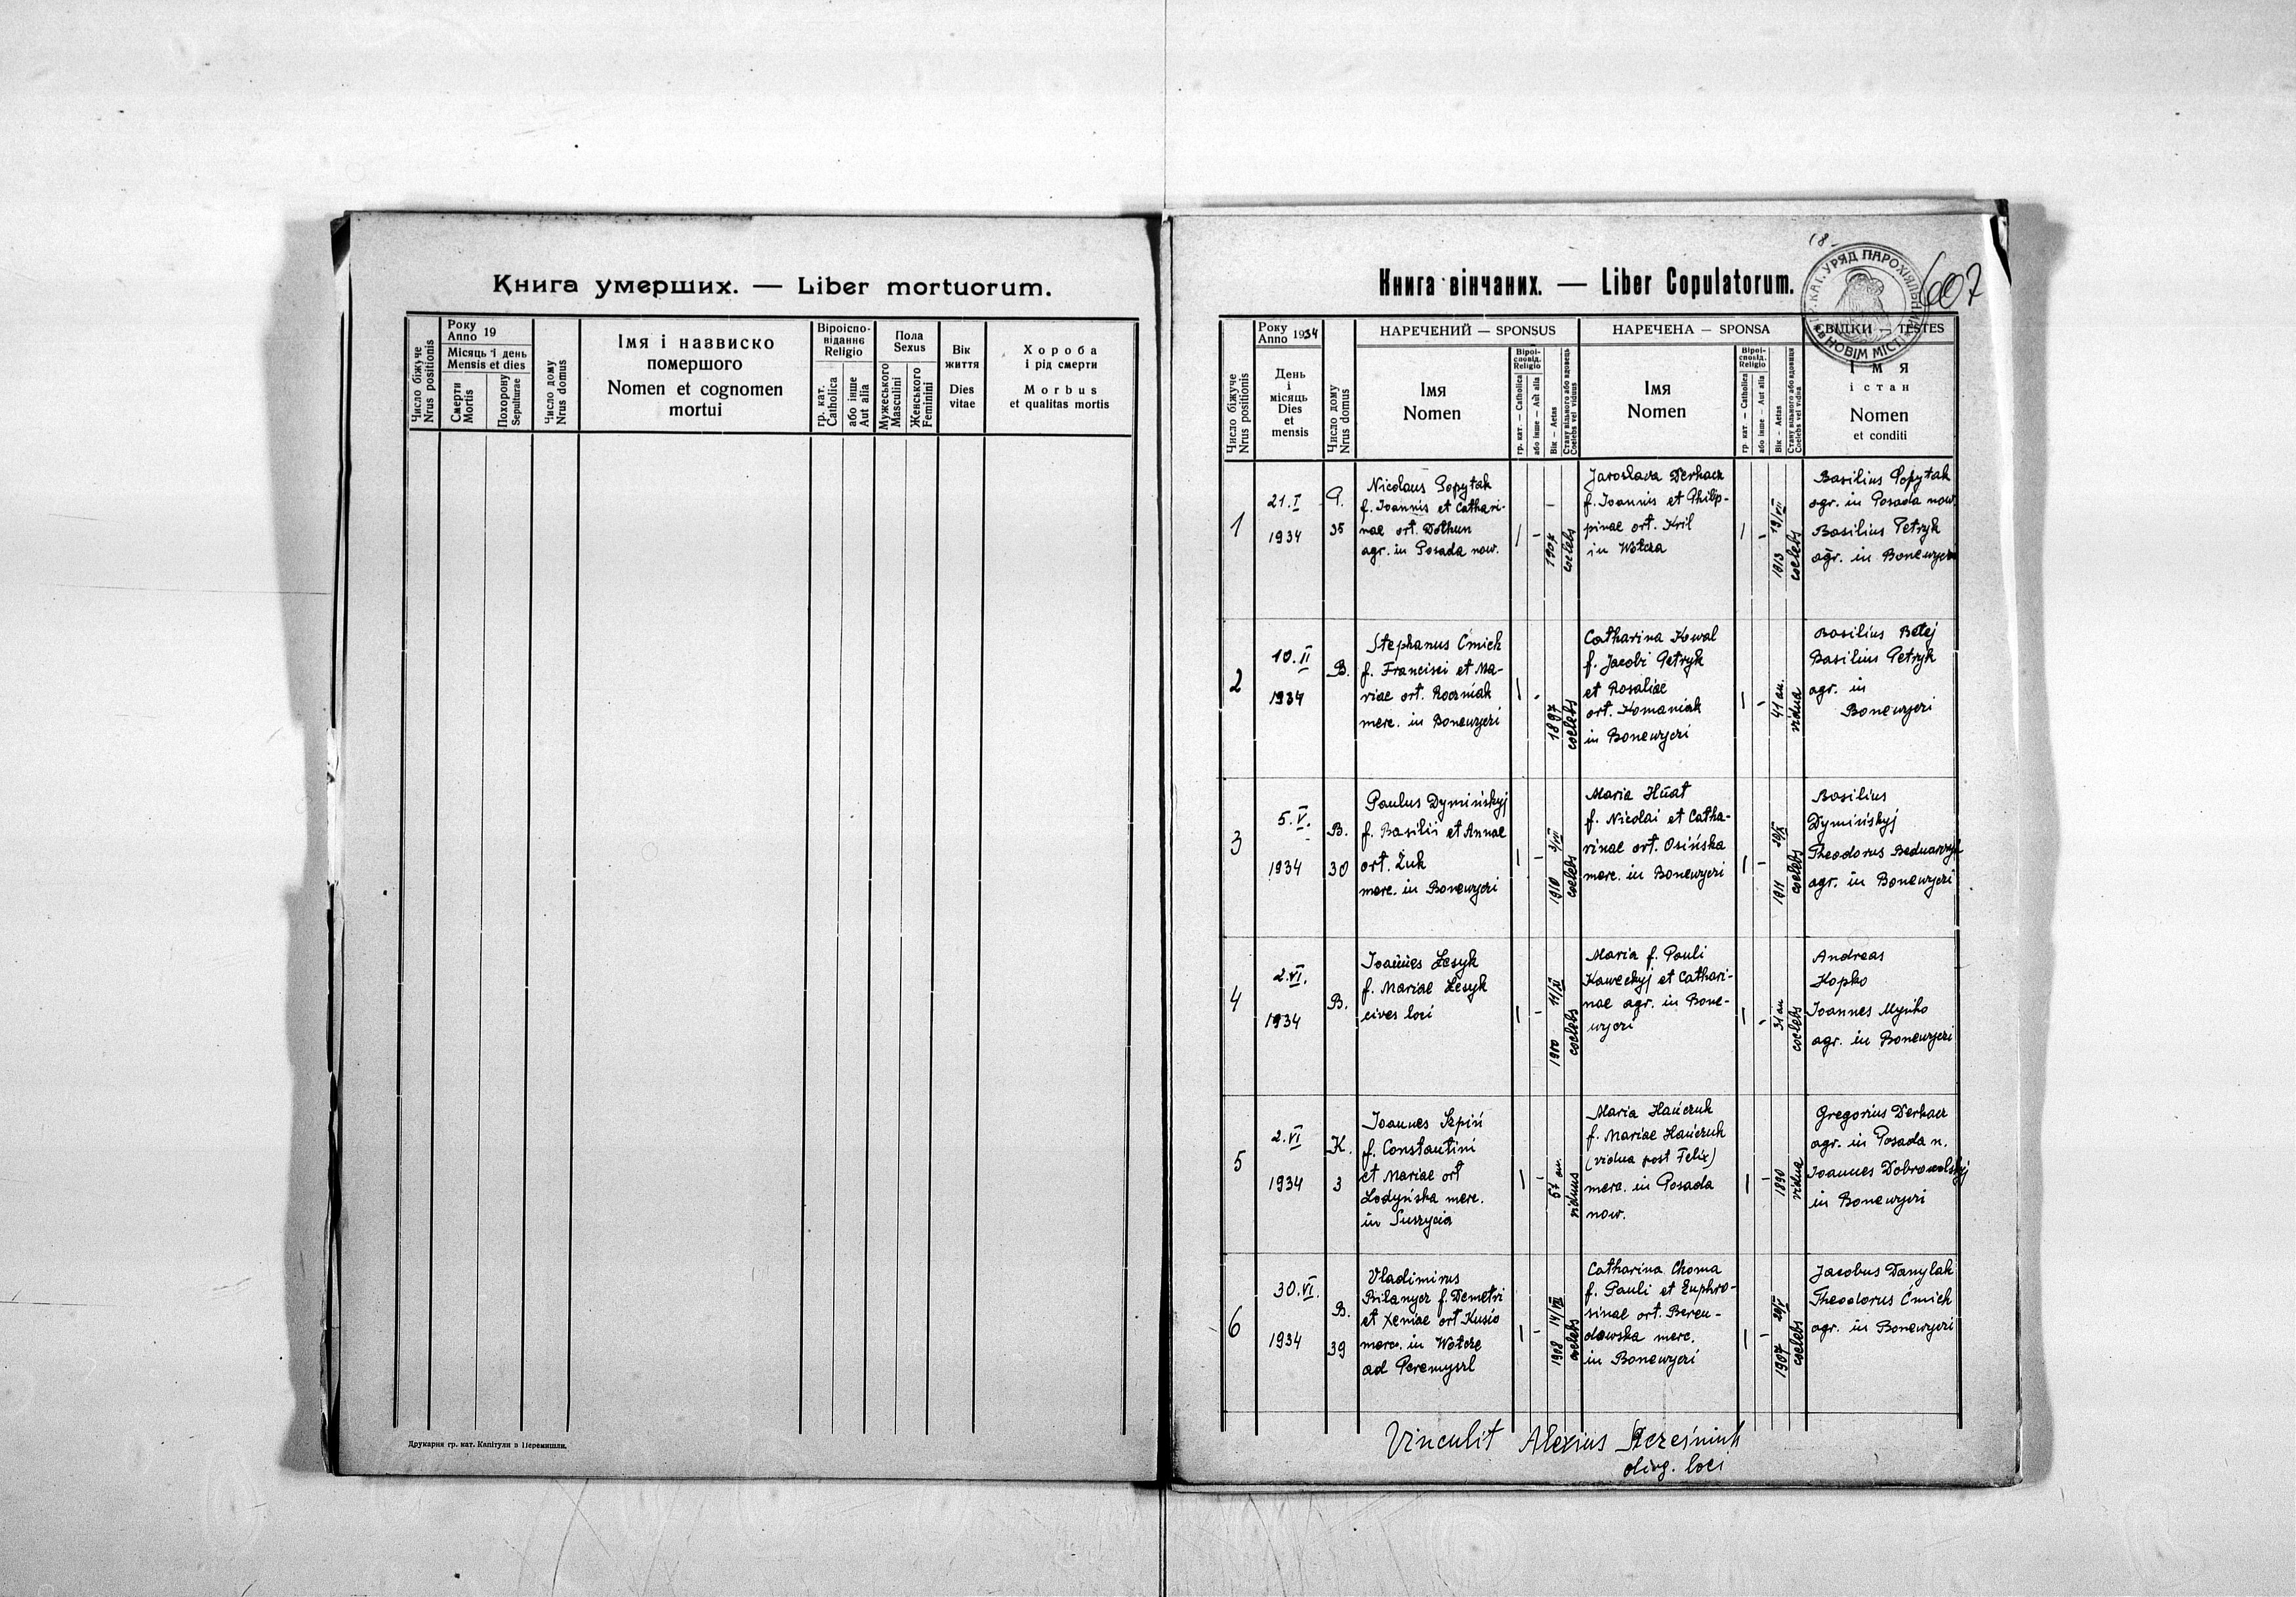 Книга умерших. — Liber mortuorum.
Число біжуче
Nrus positionis
Року
Anno 19
Місяць і день
Mensis et dies
Смерти
Mortis
Похорону
Sepulturae
Число дому
Nrus domus
Імя і назвиско
помершого
Nomen et cognomen
mortui
Віроіспо-
віданнє
Religio
гр. кат.
Catholica
або інше
Aut alia
Пола
Sexus
Мужеського
Masculini
Женського
Feminini
Вік
життя
Dies
vitae
Хороба
і рід смерти
Morbus
et qualitas mortis
Друкарня гр. кат. Капітули в Перемишли.
18-
607
Книга вінчаних. — Liber Copulatorum.
ГР. КАТ. УРЯД ПАРОХІЯЛЬНИЙ
в НОВІМ МІСТІ
Число біжуче
Nrus positionis
Року
Anno 1934
День
і
місяць
Dies
et
mensis
Число дому
Nrus domus
НАРЕЧЕНИЙ — SPONSUS
Імя
Nomen
Віроі-
сповід.
Religio
гр. кат — Catholica
або інше — Aut alia
Вік — Aetas
Стану вільного або вдовець
Coelebs vel viduus
НАРЕЧЕНА — SPONSA
Імя
Nomen
Віроі-
сповід.
Religio
гр. кат — Catholica
або інше — Aut alia
Вік — Aetas
Стану вільного або вдовиця
Coelebs vel vidua
СВІДКИ — TESTES
Імя
і стан
Nomen
et conditi
1
21.I
1934
P.
35
Nicolaus Popytak
f. Joannis et Cathari-
nae ort. Dothun
agr. in Posada now.
1907
coelebs
Jaroslava Derkacz
f. Joannis et Philip-
pinae ort. Kril
in Wołcza
1913 19/VII
coelebs
Basilius Popytak
agr. in Posada now.
Basilius Petryk
agr. in Bonewycze
2
10.II
1934
B.
Stephanus Ćmich
f. Francisci et Ma-
riae ort. Roczniak
merc. in Bonewyczi
1897
coelebs
Catharina Kowal
f. Jacobi Petryk
et Rosaliae
ort. Romaniak
in Bonewyczi
41 an.
vidua
Basilius Bełej
Basilius Petryk
agr. in
Bonewyczi
3
5.V.
1934
B.
30
Paulus Dymińskyj
f. Basilii et Annae
ort. Żuk
merc. in Bonewyczi
1910 3/VI
coelebs
Maria Hnat
f. Nicolai et Catha-
rinae ort. Osińska
merc. in Bonewyczi
1911 20/X
coelebs
Basilius
Dymińskyj
Theodorus Bednarczyk
agr. in Bonewyczi
4
2.VI.
1934
B.
Joannes Łesyk
f. Mariae Łesyk
cives loci
1910 11/XI
coelebs
Maria f. Pauli
Kaweckyj et Cathari-
nae agr. in Bone-
wyczi
31 an
coelebs
Andreas
Kopko
Joannes Mynko
agr. in Bonewyczi
5
2.VI
1934
K.
3
Joannes Szpiń
f. Constantini
et Mariae ort
Lodyńska merc.
in Suszycia
57 an.
viduus
Maria Hańczuk
f. Mariae Hańczuk
(vidua post Felix)
merc. in Posada
now.
1890
vidua
Gregorius Derkacz
agr. in Posada n.
Joannes Dobrowolskyj
in Bonewyczi
6
30.VI.
1934
B.
39
Vladimirus
Biłanycz f. Demetri
et Xeniae ort Kusio
merc. in Wołcze
ad Peremyszl
1908 14/VII
coelebs
Catharina Choma
f. Pauli et Euphro-
sinae ort. Beren-
dowska merc.
in Bonewyczi
1907 20/V
coelebs
Jacobus Danylak
Theodorus Ćmich
agr. in Bonewyczi
Vinculit Alexius
loci